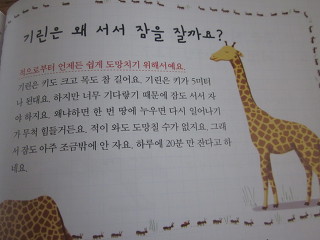 기린은 왜 서서 잠을 잘까요?
적으로부터 언제든 쉽게 도망치기 위해서예요.
기린은 키도 크고 목도 참 길어요. 기린은 키가 5미터
나 된대요. 하지만 너무 기다랗기 때문에 잠도 서서 자
야 하지요. 왜냐하면 한 번 땅에 누우면 다시 일어나기
가 무척 힘들거든요. 적이 와도 도망칠 수가 없지요. 그래
서 잠도 아주 조금밖에 안 자요. 하루에 20분만 잔다고 하
네요.